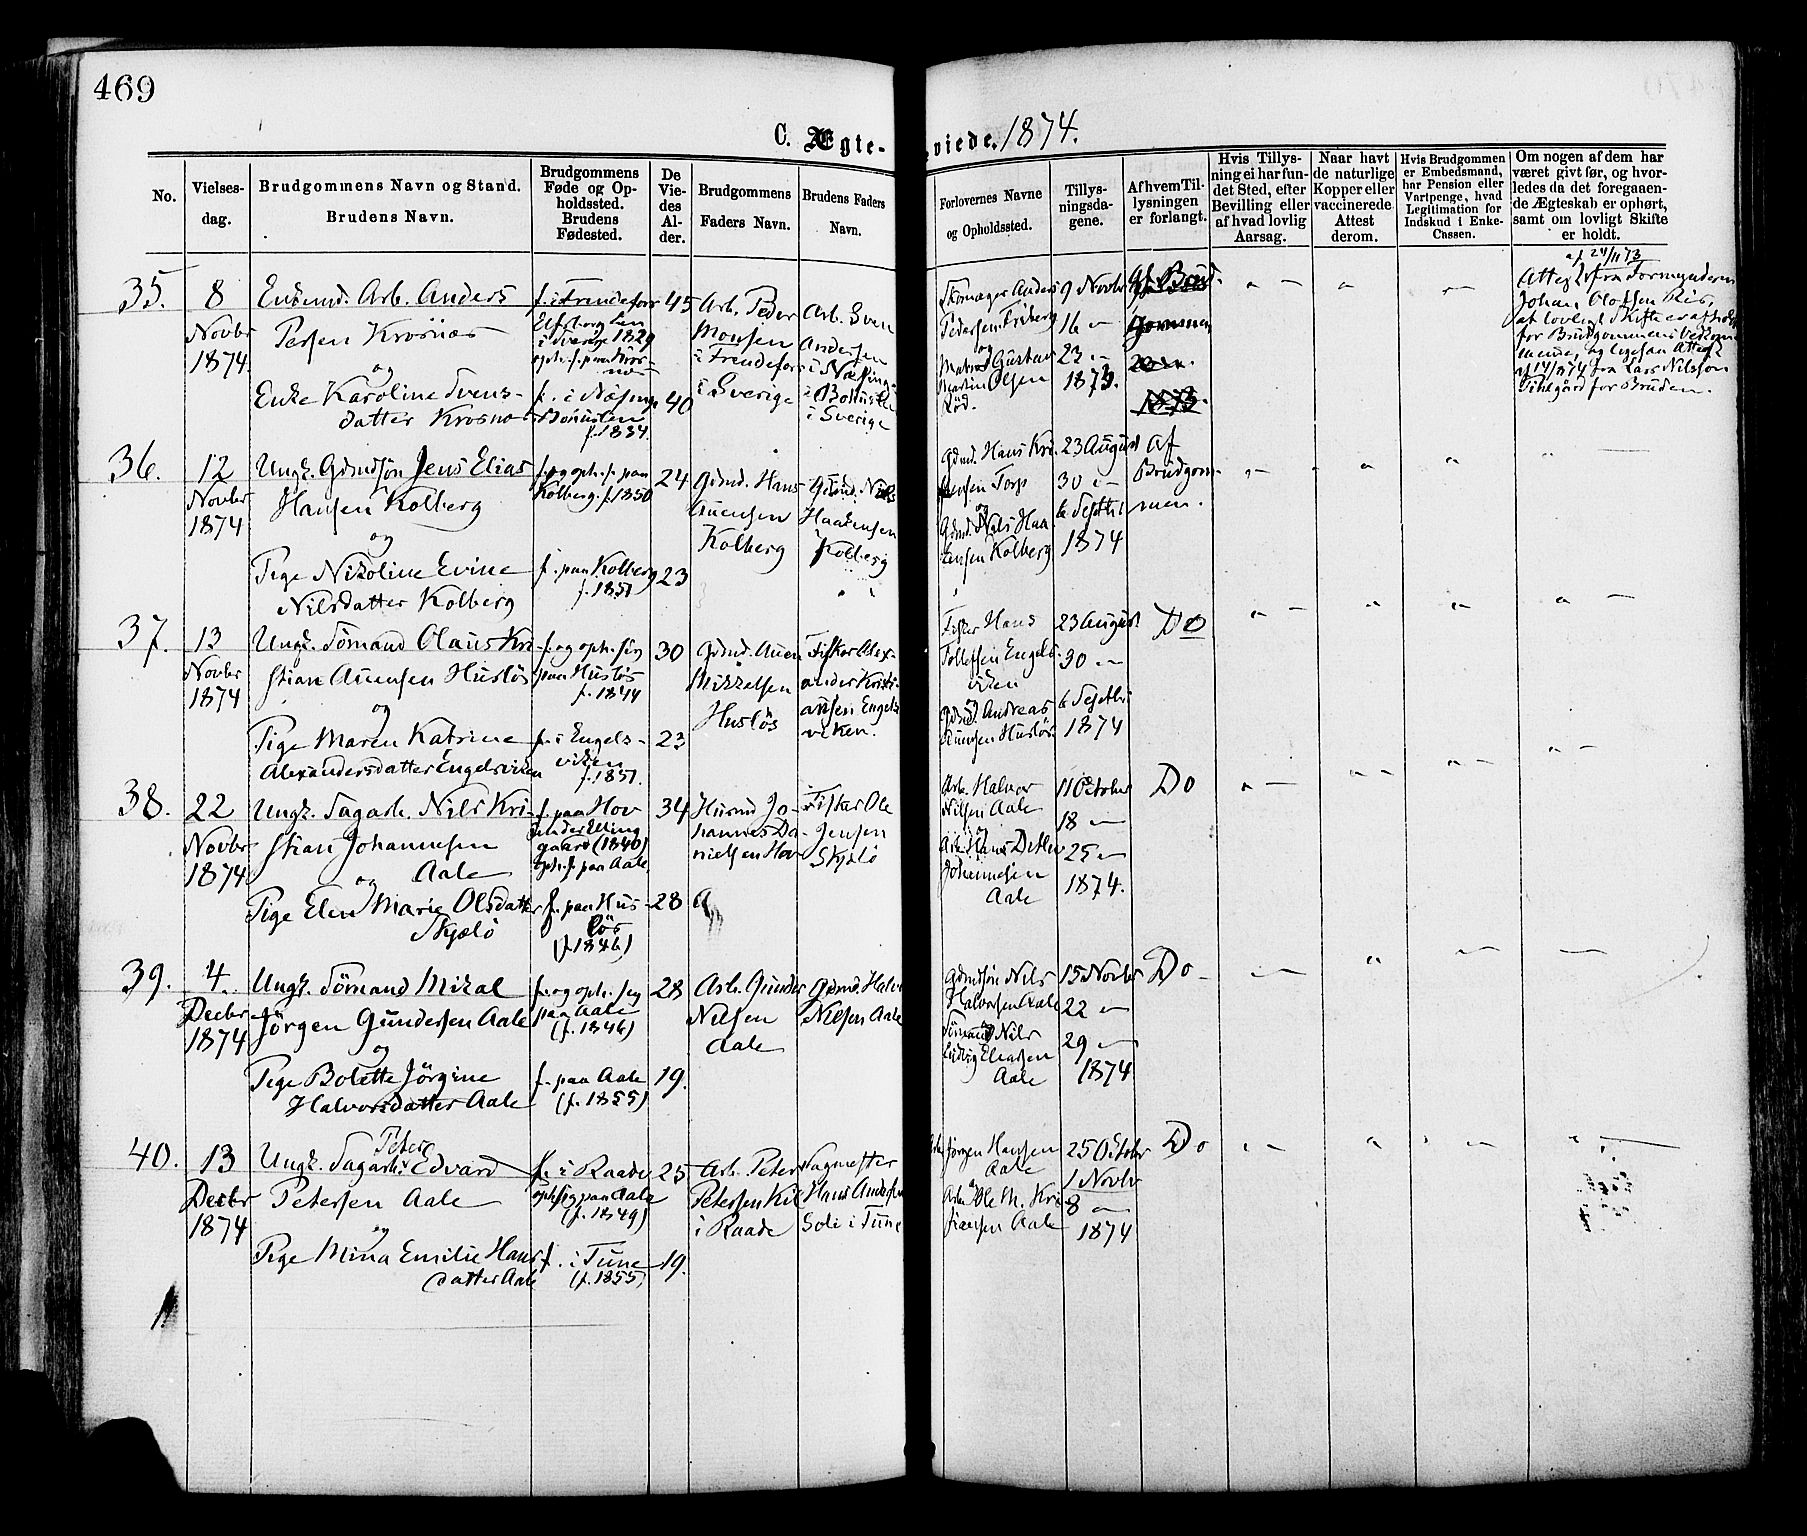 469
C. Ægte-viede. 1874.
No.
Vielses-
dag.
Brudgommens Navn og Stand.
Brudens Navn.
Brudgommens
Føde og Op-
holdssted.
Brudens
Fødested.
De
Vie-
des
Al-
der.
Brudgommens
Faders Navn.
Brudens Faders
Navn.
Forlovernes Navne
og Opholdssted.
Tillys-
ningsda-
gene.
Af hvem Til-
lysningen
er forlangt.
Hvis Tillys-
ning ei har fun-
det Sted, efter
Bevilling eller
af hvad lovlig
Aarsag.
Naar havt
de naturlige
Kopper eller
vaccinerede.
Attest
derom.
Hvis Brudgommen
er Embedsmand,
har Pension eller
Vartpenge, hvad
Legitimation for
Indskud i Enke-
Cassen.
Om nogen af dem har
været givt før, og hvor-
ledes da det foregaaen-
de Ægteskab er ophørt,
samt om lovligt Skifte
er holdt.
35.
8
Novbr
1874
Enkemd. Arb. Anders
Persen Krosnæs
og
Enke Karoline Svens-
datter Krosnæs
f. i Frendefors
Elfsborg Len
i Sverige 1829
f. i Næsinge
Bohuslen
f. 1834.
45
40
Arb. Peder
Monsen
i Frendefors
i Sverige
Arb. Sven
Andersen
i Næsinge
i Bohuslen
i Sverige
Skomager Anders
Pedersen Friberg
og
Matros Gustav
Martin Olsen
Rød.
9 Novbr
16 "
23 "
1873.
af 24/11 73
Attest fra Formynderen
Johan Olofsen Ris,
at lovligt Skifte er afholdt
for Brudgommens Vedkom-
mende, og ligesaa Attest
af 14/1 1874 fra Lars Nilsson
for Bruden.
36.
12
Novbr
1874
Ungk. Gdmdsøn Jens Elias
Hansen Kolberg
og
Pige Nikoline Evine
Nilsdatter Kolberg
f. og oph. s. paa
Kolberg. f. 1850
f. paa Kolberg
f. 1851
24
23
Gdmd. Hans
Evensen
Kolberg
Gdmd. Nils
Haakensen
Kolberg
Gdmd. Hans Kri-
stensen Torp
og
Gdmd. Nils Haa-
kensen Kolberg
23 August
30 "
6 Septbr
1874
Af
Brudgom-
men.
37.
13
Novbr
1874
Ungk. Sømand Olaus Kri-
stian Auensen Husløs
og
Pige Maren Katrine
Alexandersdatter Engelsviken
f. og oph. sig
paa Husløs
f. 1844
f. i Engels-
viken
f. 1851.
30
23
Gdmd. Auen
Mikkelsen
Husløs
Fisker Alex-
ander Kristi-
ansen Engels-
viken.
Fisker Hans
Tollefsen Engels-
viken
og
Gdmd. Andreas
Auensen Husløs.
23 August
30 "
6 Septbr
1874
Do
38.
22
Novbr
1874
Ungk. Dagarb. Nils Kri-
stian Johannesen
Aale
og
Pige Elen Marie Olsdatter
Skjælø
f. paa Hov
under Elling-
gaard (1840)
oph. s. paa Aale.
f. paa Hus-
løs
(f. 1846)
34
28
Husmd Jo-
hannes Da-
nielsen Hov
A
Fisker Ole
Jensen
Skjælø
Arb. Halvor
Nilsen Aale
og
Arb. Hans Detlev
Johannesen
Aale
11 October
18 "
25 "
1874.
Do
39.
4.
Decbr
1874
Ungk. Sømand Mikal
Jørgen Gundersen Aale
og
Pige Bolette Jørgine
Halvorsdatter Aale
f. og oph. sig
paa Aale
(f. 1846)
f. paa Aale
(f. 1855)
28
19.
Arb. Gunder
Nilsen
Aale
Gdmd. Halvor
Nilsen Aale
Gdmdsøn Nils
Halvorsen Aale
og
Sømand Nils
Ludvig Eliasen
Aale
15 Novbr
22 "
29 "
1874
Do
40.
13
Decbr
1874
Peter
Ungk. Dagarb. Edvard
Petersen Aale
og
Pige Mina Emilie Hans-
datter Aale
f. i Raade
oph. sig paa Aale
(f. 1849)
f. i Tune
(f. 1855)
25
19.
Arb. Peter
Petersen Kil
i Raade
Vagmester
Hans Andersen
Soli i Tune
Arb. Jørgen Hansen
Aale
og
Arb. Ole M. Kri-
stiansen Aale
25 October
1 Novbr
8 "
1874
Do